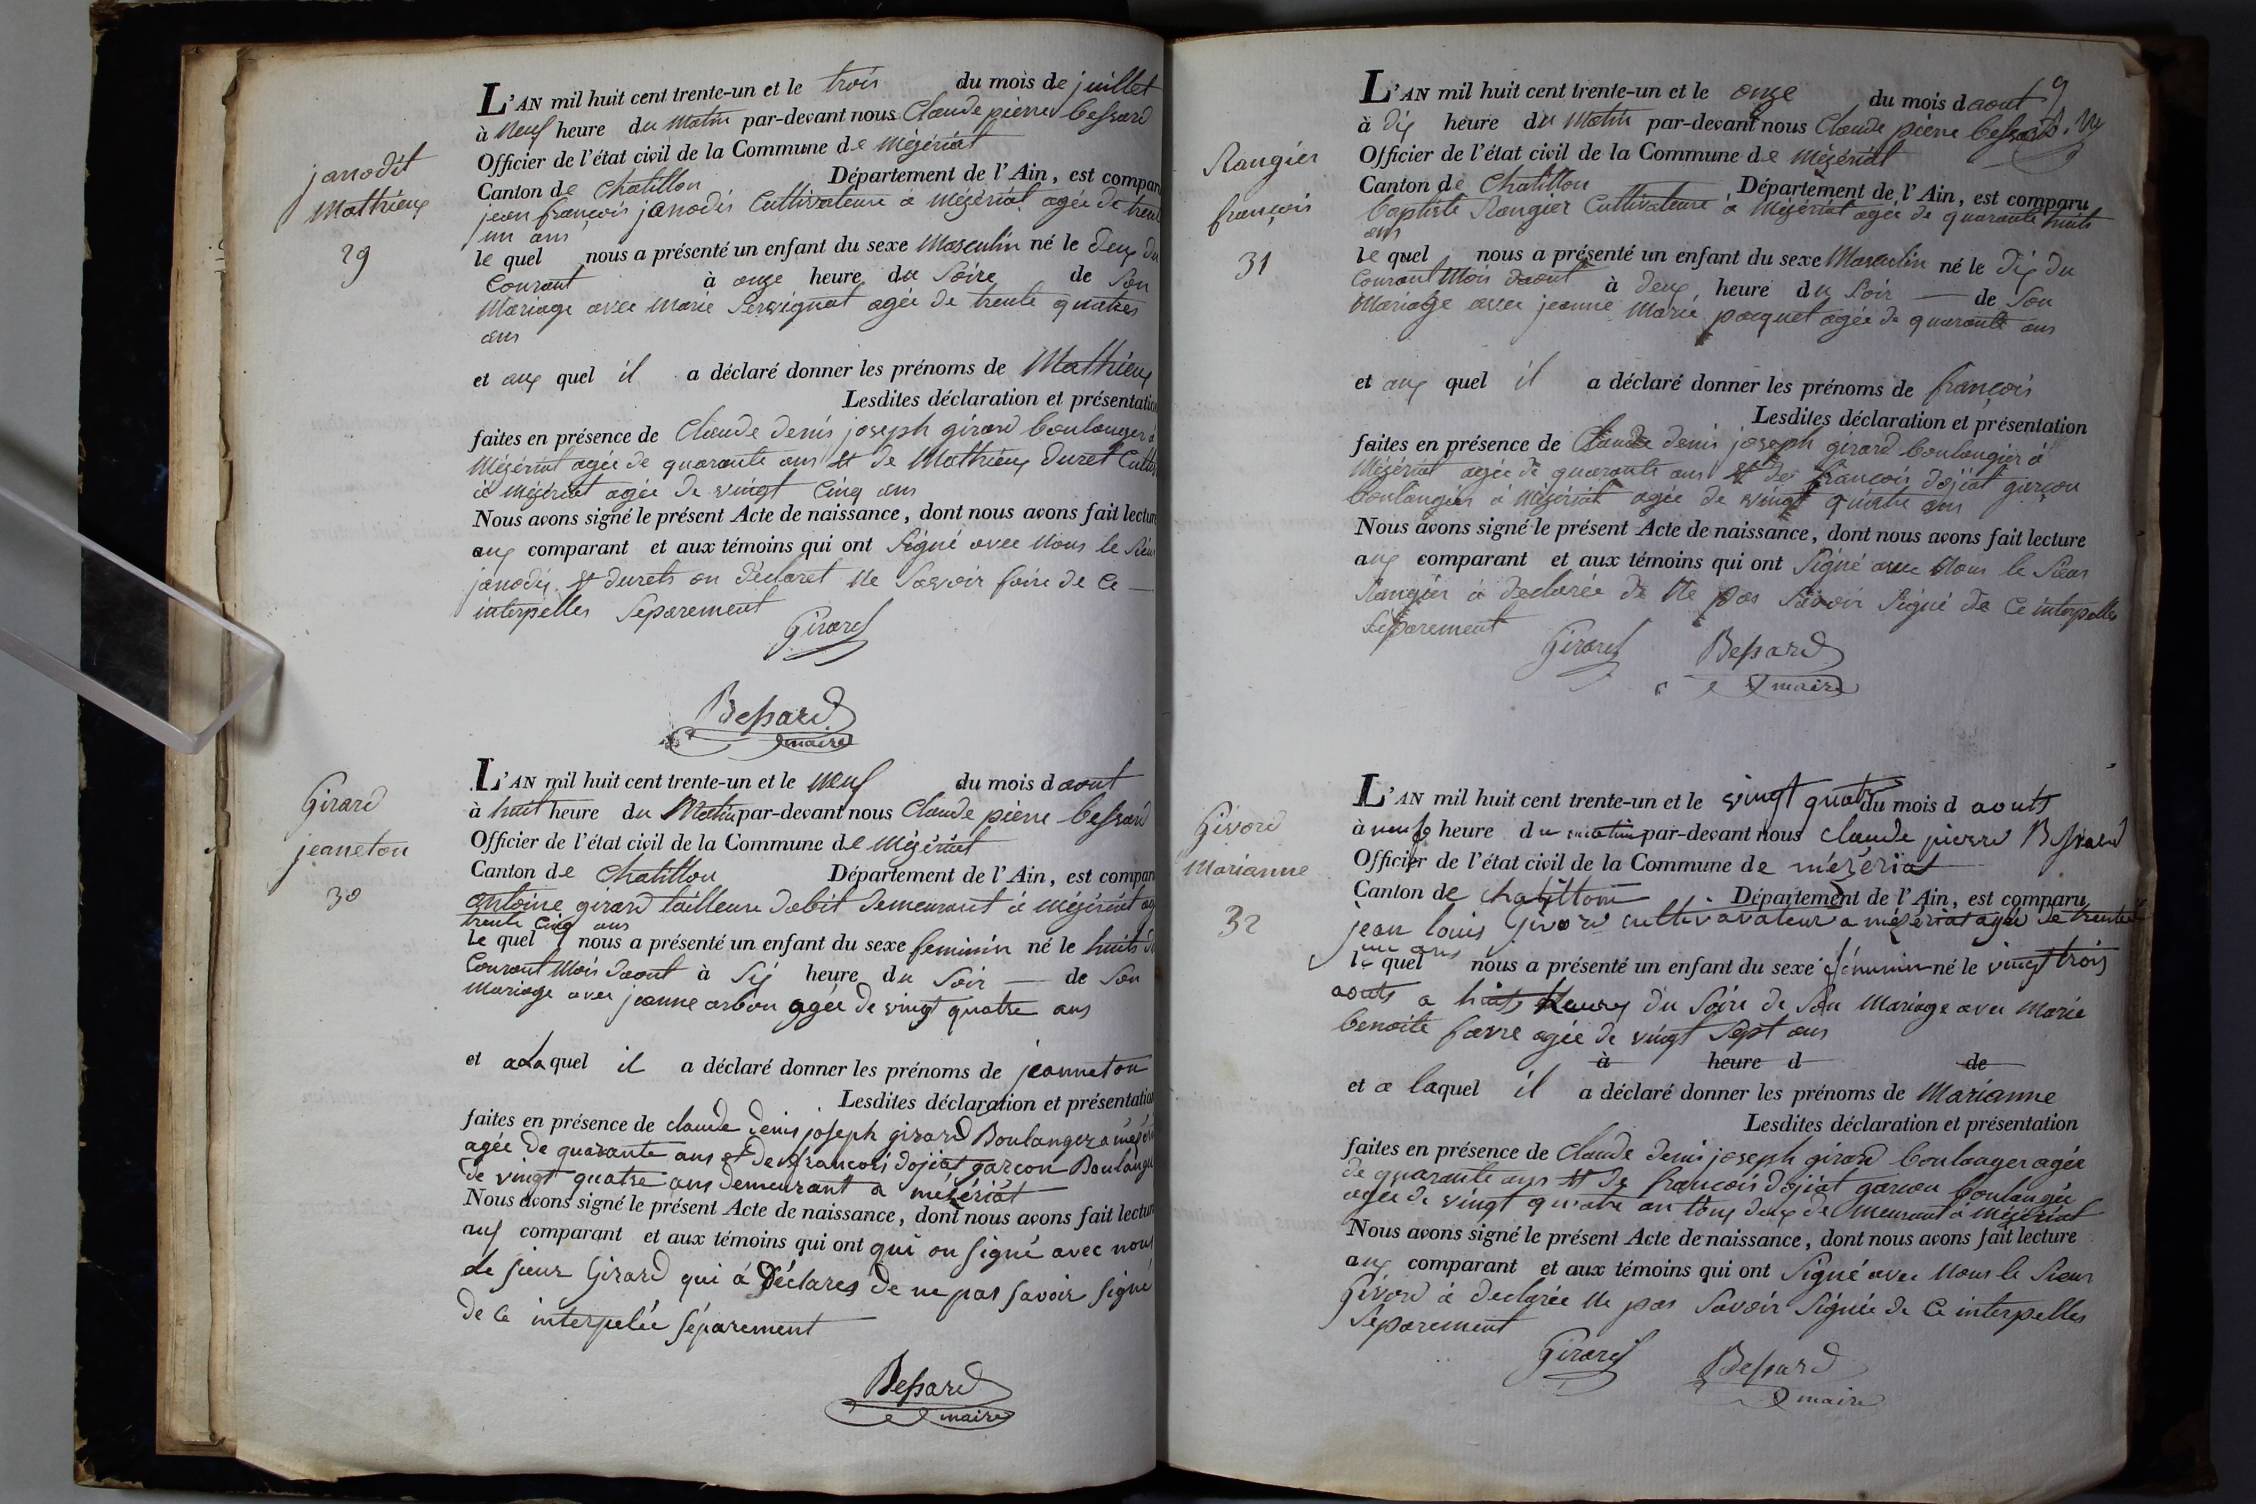 janodit
Mathieux
29
L'AN mil huit cent trente-un et le trois du mois de juillet
à Neuf heure du Matin par-devant nous Claude pierre bessard
Officier de l'état civil de la Commune de Mézériat
Canton de Chatillon Département de l'Ain, est compar
jean françois janodis Cultivateure à Mézériat agée de trente
un ans
le quel nous a présenté un enfant du sexe Masculin né le deux du
Courant à onze heure du Soire de Son
Mariage avec Marie agée de trente quatres
ans
et aux quel il a déclaré donner les prénoms de Mathieux
Lesdites déclaration et présentation
faites en présence de Claude denis joseph girard boulanger à
Mézériat agée de quarante ans et de Mathieux duret Cultiv
à Mézériat agée de vingt Cinq ans
Nous avons signé le présent Acte de naissance, dont nous avons fait lecture
aux comparant et aux témoins qui ont Signé avec Nous le Sieur
janodis et durets on déclaret Ne Savoir faire de Ce —
interpelles Séparement
Girard
Bessard
maire
Girard
jeaneton
30
L'AN mil huit cent trente-un et le neuf du mois d aout
à huit heure du Matin par-devant nous Claude pierre bessard
Officier de l'état civil de la Commune de Mézériat
Canton de Chatillon Département de l'Ain, est compar
antoine girard tailleure dabit demeurant à Mézériat ag
trente Cinq ans
le quel nous a présenté un enfant du sexe feminin né le huits du
Courant Mois daout à Six heure du Soir — de Son
Mariage avec jeanne arbon agée de vingt quatre ans
et a La quel il a déclaré donner les prénoms de jeanneton
Lesdites déclaration et présentation
faites en présence de claude denis joseph girard Boulanger a mezeri
agée de quarante ans et de francois dojiat garcon Boulange
de vingt quatre ans demeurant a mézériat
Nous avons signé le présent Acte de naissance, dont nous avons fait lecture
aux comparant et aux témoins qui ont qui on signé avec nous
Le sieur Girard qui á Déclares de ne pas savoir signé
de ce interpelée séparement
Bessard
maire
9
Rangier
françois
31
L'AN mil huit cent trente-un et le onze du mois d aout
à dix heure du Matin par-devant nous Claude pierre bessard
Officier de l'état civil de la Commune de Mézériat
Canton de Chatillon Département de l'Ain, est comparu
baptiste Rangier Cultivateure à Mézériat agée de quarante huits
ans
le quel nous a présenté un enfant du sexe Masculin né le dix du
Courant Mois daout à deux heure du Soir — de Son
Mariage avec jeanne Marie pacquet agée de quarante ans
et aux quel il a déclaré donner les prénoms de françois
Lesdites déclaration et présentation
faites en présence de Claude denis joseph girard boulangier à
Mézériat agée de quarante ans et de francois dojiat garçon
boulangier à Mézériat agée de vingt quatre ans
Nous avons signé le présent Acte de naissance, dont nous avons fait lecture
aux comparant et aux témoins qui ont Signé avec Nous le Sieur
Rangier à declarée de Ne pas Savoir Signé de Ce interpelles
Séparement
Girard Bessard
maire
Givord
Marianne
32
L'AN mil huit cent trente-un et le vingt quatre du mois d aouts
à neufs heure du matin par-devant nous claude pierre Bessard
Officier de l'état civil de la Commune de mézériat
Canton de chatillon Département de l'Ain, est comparu
jean louis Givord cultivavateur a mézériat agée de trente
un ans
le quel nous a présenté un enfant du sexe féminin né le vingt trois
aouts a huits heures du Soire de Son Mariage avec Marie
benoite favre agée de vingt Sept ans
à heure d de
et a laquel il a déclaré donner les prénoms de Marianne
Lesdites déclaration et présentation
faites en présence de Claude denis joseph girard boulanger agée
de quarante ans et de francois dojiat garcon boulangée
agée de vingt quatre an tous deux demeurant à Mézériat
Nous avons signé le présent Acte de naissance, dont nous avons fait lecture
aux comparant et aux témoins qui ont Signé avec Nous le Sieur
Givord à declarée Ne pas Savoir Signée de Ce interpelles
Séparement
Girard Bessard
maire